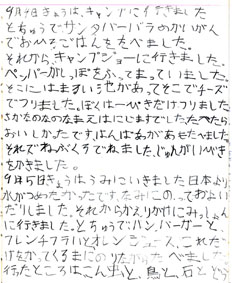 9月4日きょうは、キャンプに行きました
とちゅうで、サンタバーバラのかいがん
でおひるごはんをたべました。
それから、キャンプジョーに行きました。
ペッパーがしっぽをふってまっていました。
そこにはますいけがあってそこでチーズ
でつりました。ぼくは一ぴきだけつりました。
さかなのなまえはにじますでした。たべたら
おいしかったです。はんはあがあせたべました。
それでねぶくろでねました。じゅんがいびき
をかきました。
9月5日きょうはうみにいきました日本より
水がつめたかったです。なみにのっておよい
だりしました。それからかえりがけにみっしょん
に行きました。とちゅうでハンバーガーと
フレンチフライとオレンジジュース、これだ
けをかってくるまにのりながらたべました
行ったところはこん虫と、鳥と、石と